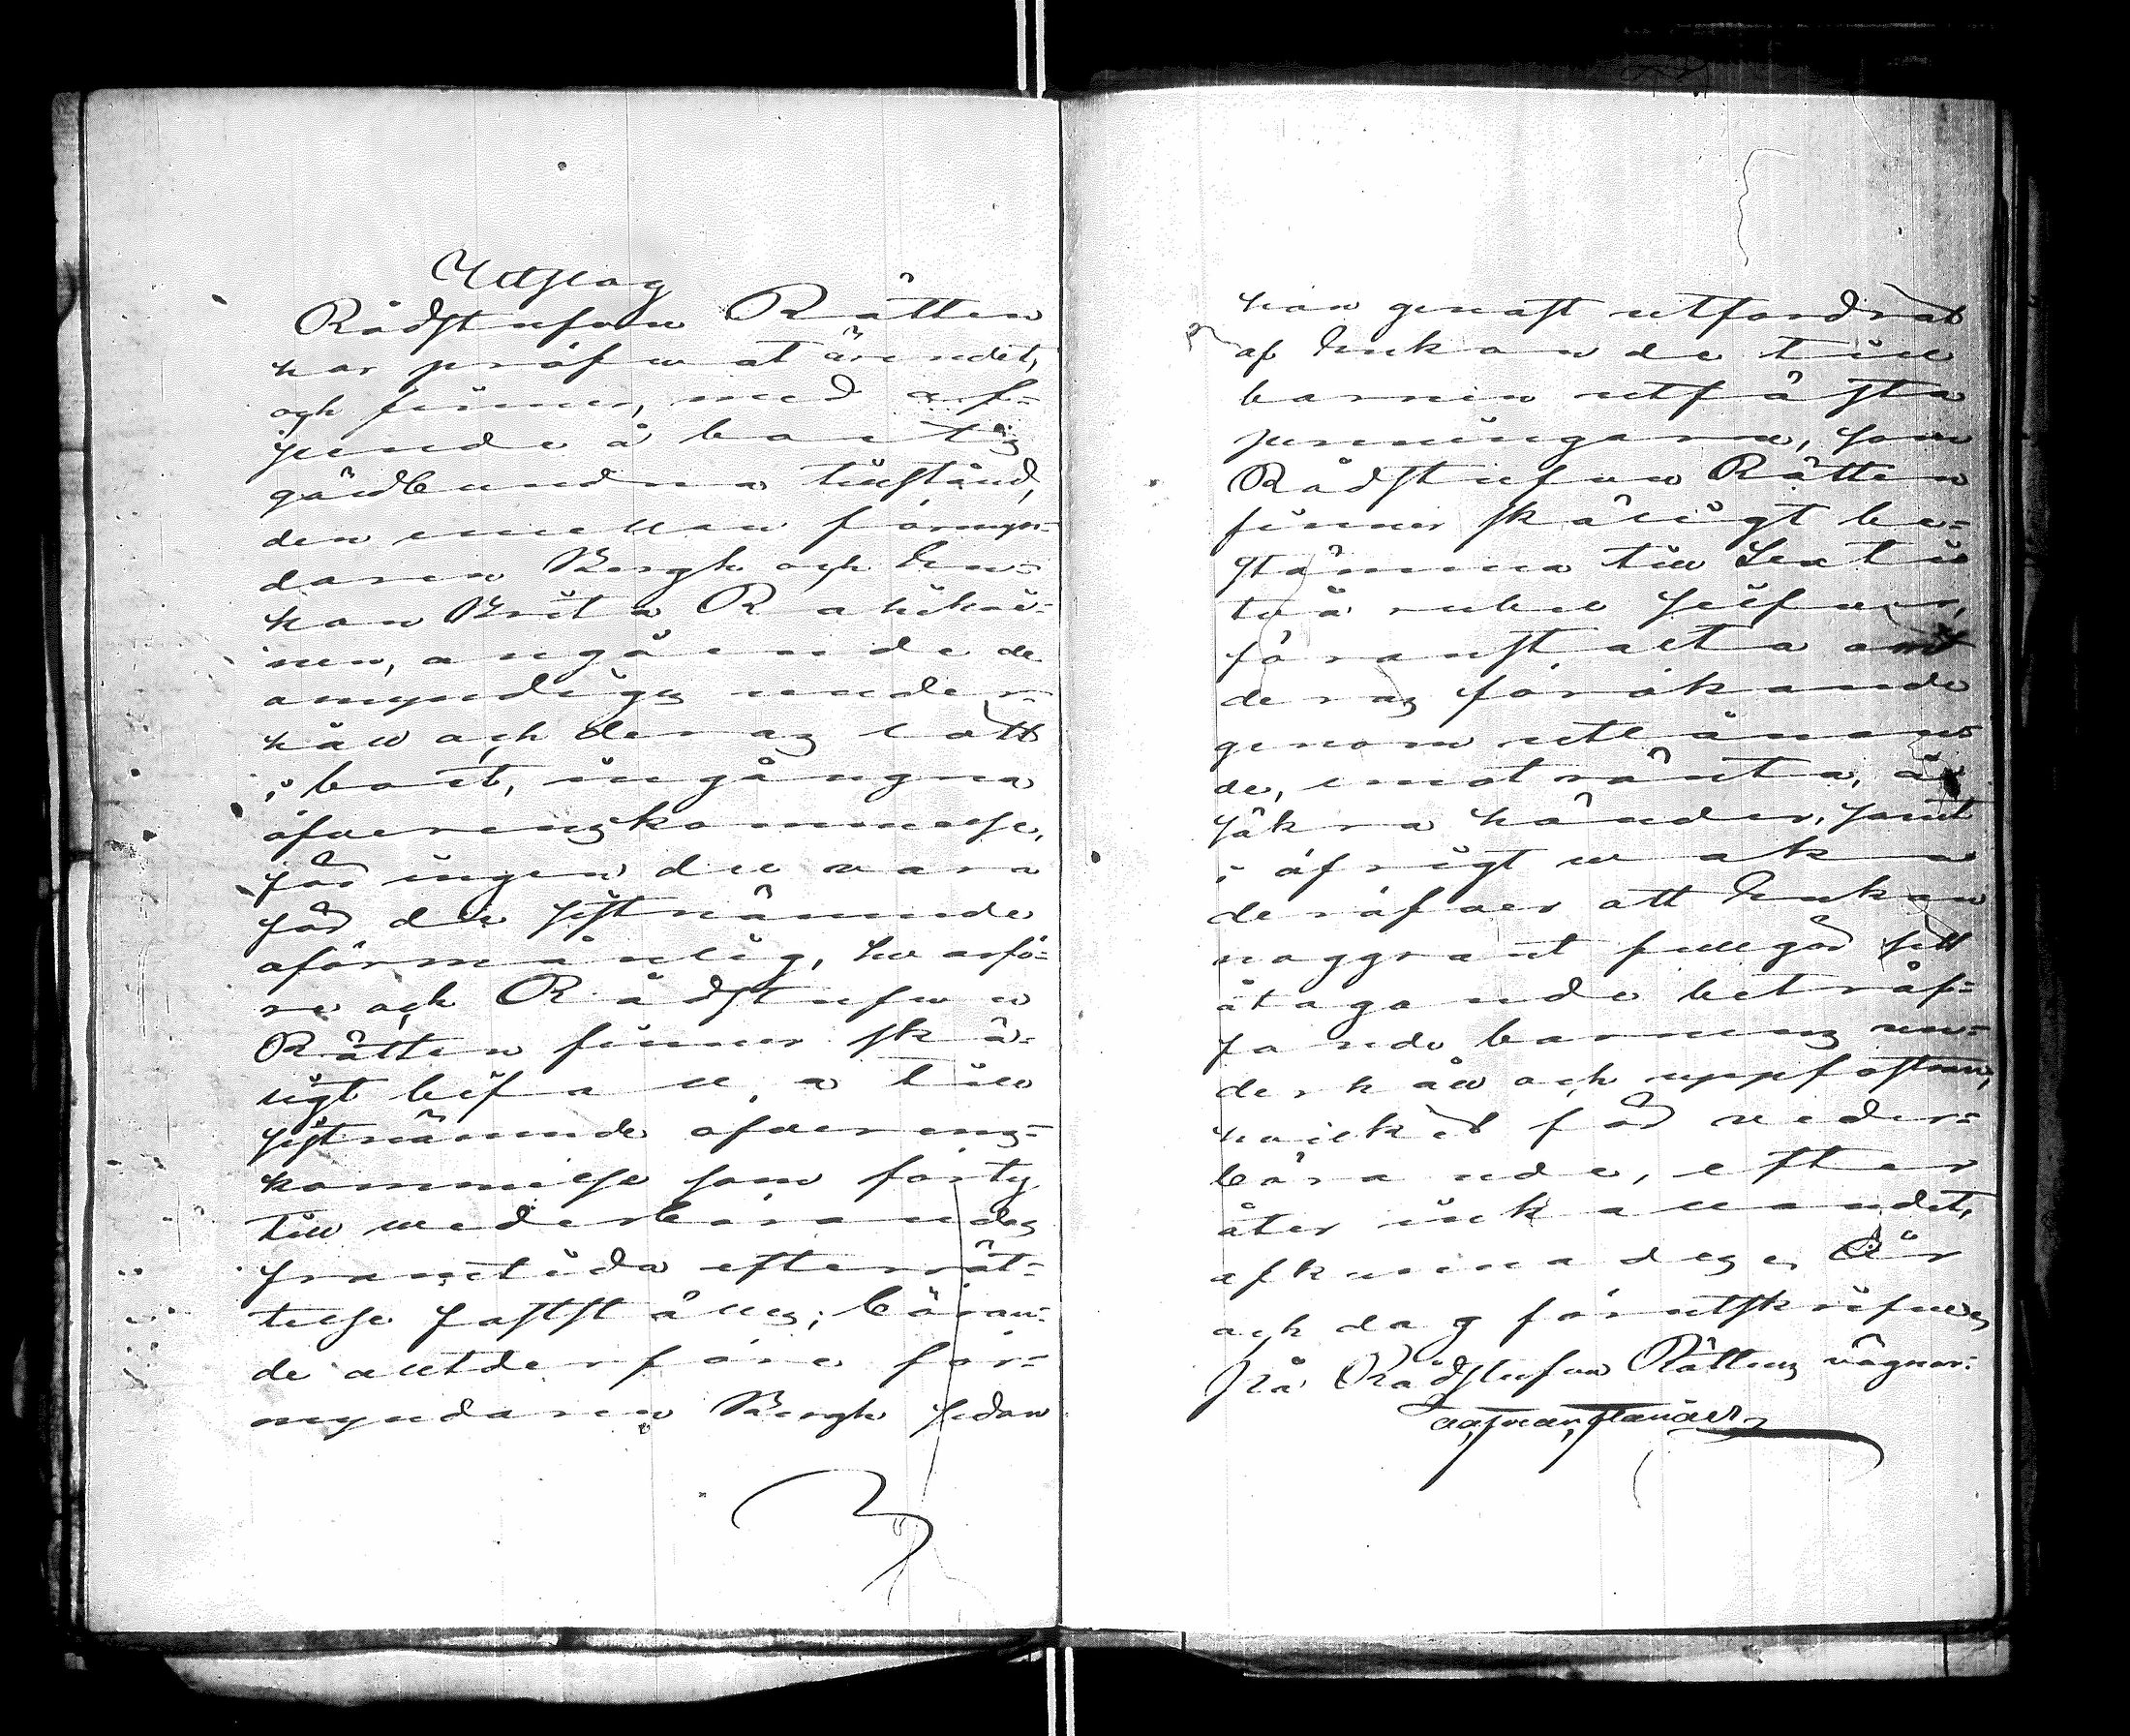 Utslag
Rådstufvu Rätten
har pröfwat ärendet,
och finner, med af-
seende å boets
gäldbundna tillstånd,
den emellan förmyn-
daren Bergh och En-
kan Brita Rahikai-
nen, angående de
omyndigas under-
håll och deras lott
i boet, ingångna
öfverenskommelse,
för ingen del vara
för de sistnämnde
oförmånlig, hvarfö-
re och Rådstufvu
Rätten finner skä-
ligt bifalla till
sistnämnde öfverens-
kommelse som förty
till wederbörandes
framtida efterrät-
telse fastställes; böran-
de alltderföre för-
myndaren Bergh sedan
han genast utfordrat
af Enkan de till
barnen utfästa
penningarne, som
Rådstufvu Rätten
finner skäligt be-
stämma till Sextio
två rubel silfver,
föranstalta om
deras förökande
genom utlånan-
de, emot ränta, å
säkra händer, samt
i öfrigt waka
deröfver att Enkan
noggrant fullgör sitt
åtagande beträf-
fande barnens un-
derhåll och uppfostran,
hvilket för veder-
börande, efter
återinkallandet,
afkunnades. År
och dag förutskrifne
På Rådstufvu Rättens vägnar: